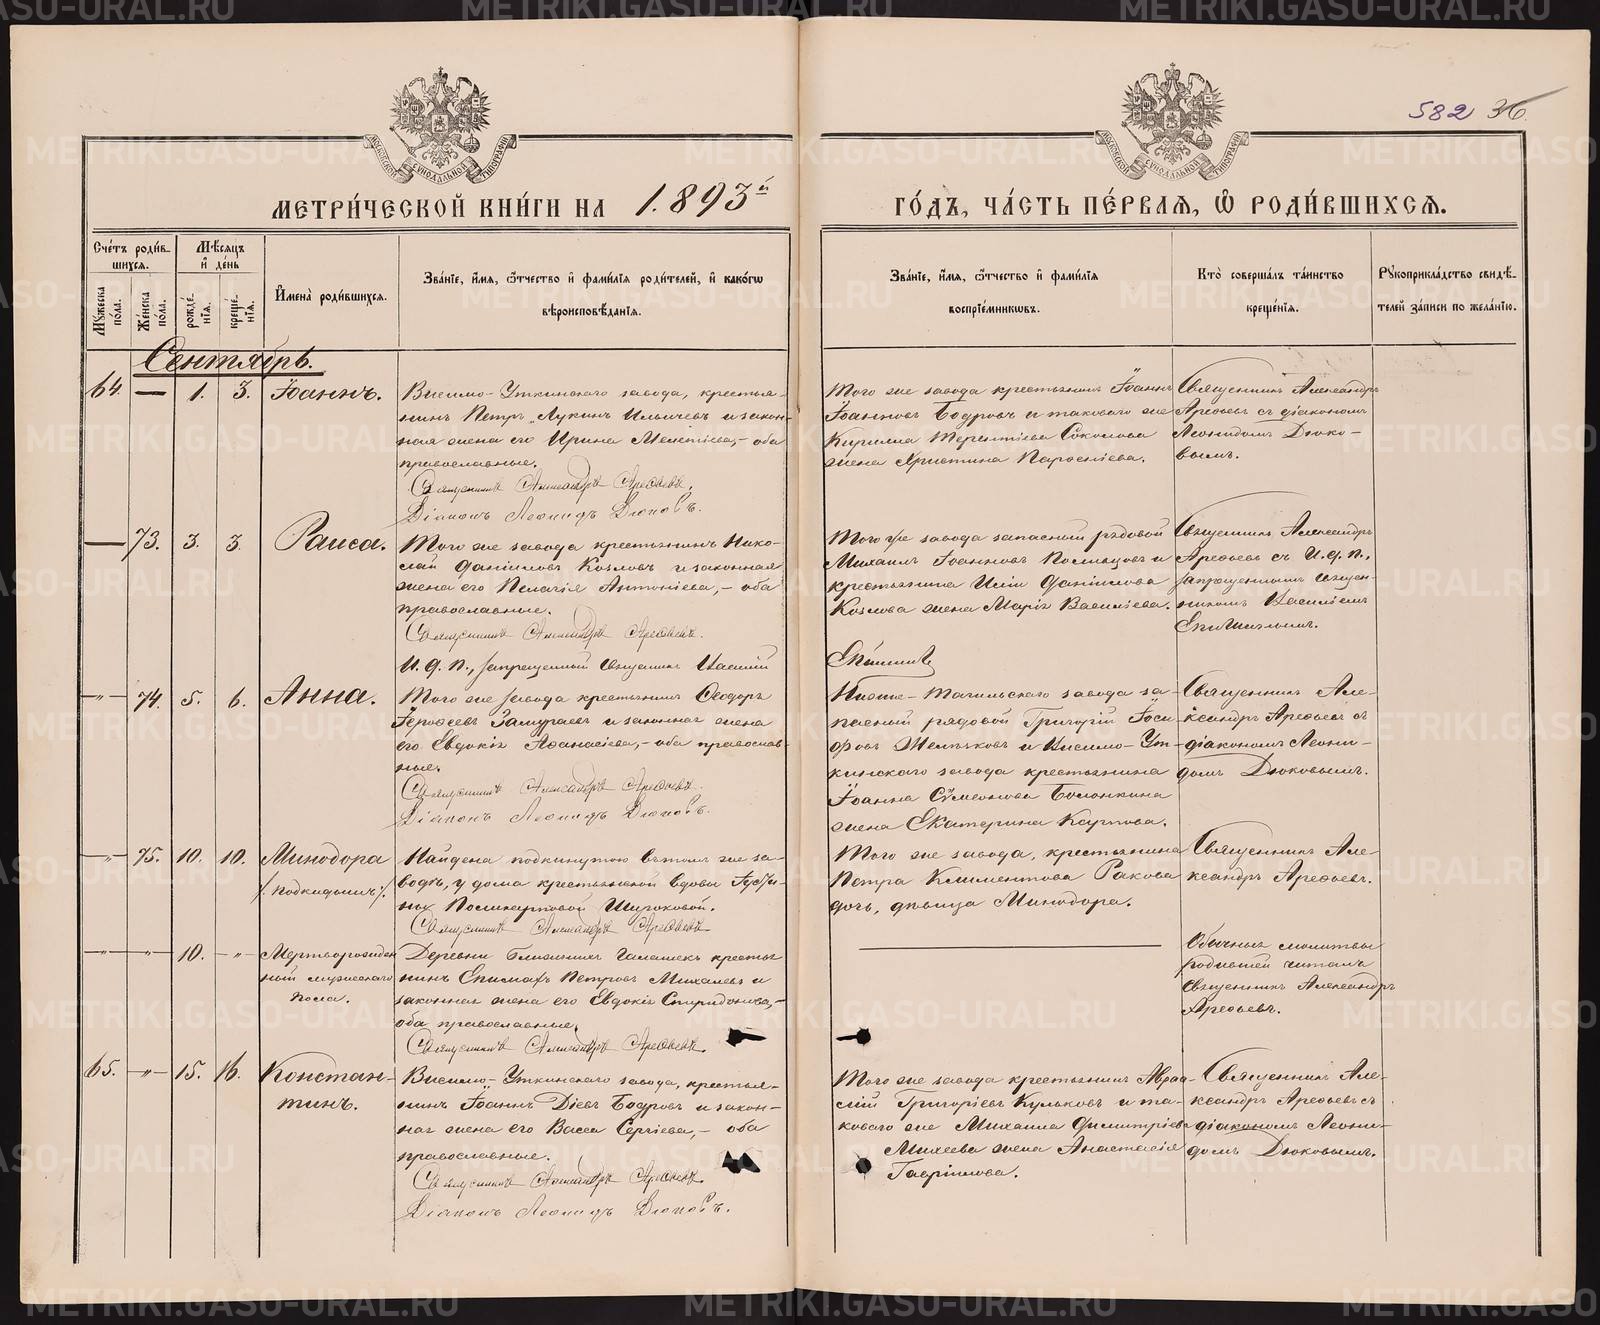 582 36
МОСКОВСКОЙ СѴНОДАЛЬНОЙ ТИПОГРАФІИ
МОСКОВСКОЙ СѴНОДАЛЬНОЙ ТИПОГРАФІИ
МЕТРИ́ЧЕСКОЙ КНИ́ГИ НА 1893й
ГО́ДЪ, ЧА́СТЬ ПЕ́РВАЯ, Ѡ РОДИ́ВШИХСЯ.
Сче́тъ роди́в-
шихся.
Му́жеска по́ла.
Же́нска по́ла.
Мѣ́сяцъ
и̂ де́нь
рожде́нія.
креще́нія.
И̂мена̀ роди́вшихся.
Зва́ніе, и́мя, ѻ́тчество и̂ фами́лія роди́телей, и̂ како́гѡ
вѣроисповѣ́данія.
Зва́ніе, и́мя, ѻ́тчество и̂ фами́лія
воспріе́мниковъ.
Кто̀ соверша́лъ та́инство
креще́нія.
Рукоприкла́дство свидѣ́-
телей за́писи по жела́нію.
Сентябрь.
64. — 1. 3. Іоаннъ.
Висимо-Уткинскаго завода, крестья-
нинъ Петръ Лукинъ Ильичевъ и закон-
ная жена его Ирина Мелетіева, – оба
православные.
Священникъ Александръ Арефьевъ.
Діаконъ Леонидъ Дюковъ.
Того же завода крестьянинъ Іоаннъ
Іоанновъ Бодровъ и таковаго же
Кирилла Терентіева Соколова
жена Христина Парѳеніева.
Священникъ Александръ
Арефьевъ съ діакономъ
Леонидомъ Дюко-
вымъ.
— 73. 3. 3. Раиса.
Того же завода крестьянинъ Нико-
лай Даніиловъ Козловъ и законная
жена его Пелагія Антоніева, – оба
православные.
Священникъ Александръ Арефьевъ.
И. д. п., запрещенный священникъ Василій
Того же завода запасный рядовой
Михаилъ Іоанновъ и
крестьянина Иліи Даніилова
Козлова жена Марія Василіева.
Священникъ Александръ
Арефьевъ съ И. д. п.,
запрещеннымъ священ-
никомъ Василіемъ
— " — 74. 5. 6. Анна.
Того же завода крестьянинъ Ѳеодоръ
Замураевъ и законная жена
его Евдокія Аѳанасіева, – оба православ-
ные.
Священникъ Александръ Арефьевъ.
Діаконъ Леонидъ Дюковъ.
Нижне-Тагильскаго завода за-
пасный рядовой Григорій Іоси-
фовъ и Висимо-Ут-
кинскаго завода крестьянина
Іоанна Сѵмеонова Болонкина
жена Екатерина Карпова.
Священникъ Але-
ксандръ Арефьевъ съ
діакономъ Леони-
домъ Дюковымъ.
— " — 75. 10. 10. Минодора
/: подкидышъ :/
Найдена подкинутою въ томъ же за-
водѣ, у дома крестьянской вдовы
Поликарповой
Священникъ Александръ Арефьевъ
Того же завода, крестьянина
Петра Климентова Ракова
дочь, дѣвица Минодора.
Священникъ Але-
ксандръ Арефьевъ.
— " — — " — 10. — " — Мертворожден
ный мужескаго
пола.
Деревни Ближнихъ Галашекъ крестья
нинъ Епимахъ Петровъ Михалевъ и
законная жена его Евдокія Спиридонова, –
оба православные.
Священникъ Александръ Арефьевъ.
Обычныя молитвы
родившей читалъ
Священникъ Александръ
Арефьевъ.
65. — " — 15. 16. Констан-
тинъ.
Висимо-Уткинскаго завода, крестья-
нинъ Іоаннъ Діевъ Бодровъ и закон-
ная жена его Васса Сергіева, – оба
православные.
Священникъ Александръ Арефьевъ
Діаконъ Леонидъ Дюковъ.
Того же завода крестьянинъ Авра-
мій Григоріевъ Кульковъ и та-
коваго же Михаила Димитріева
Михеева жена Анастасія
Гавріилова.
Священникъ Але-
ксандръ Арефьевъ съ
діакономъ Леони-
домъ Дюковымъ.
METRIKI.GASO-URAL.RU